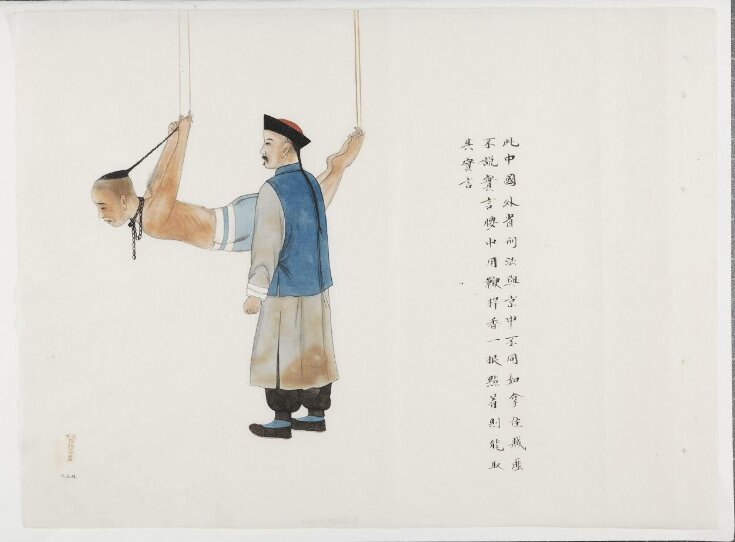 此中國外省刑法與京中不同如拿住賊匪
不說實言腰中用鞭桿香一根點着則能取
其實言
V.&A.M.